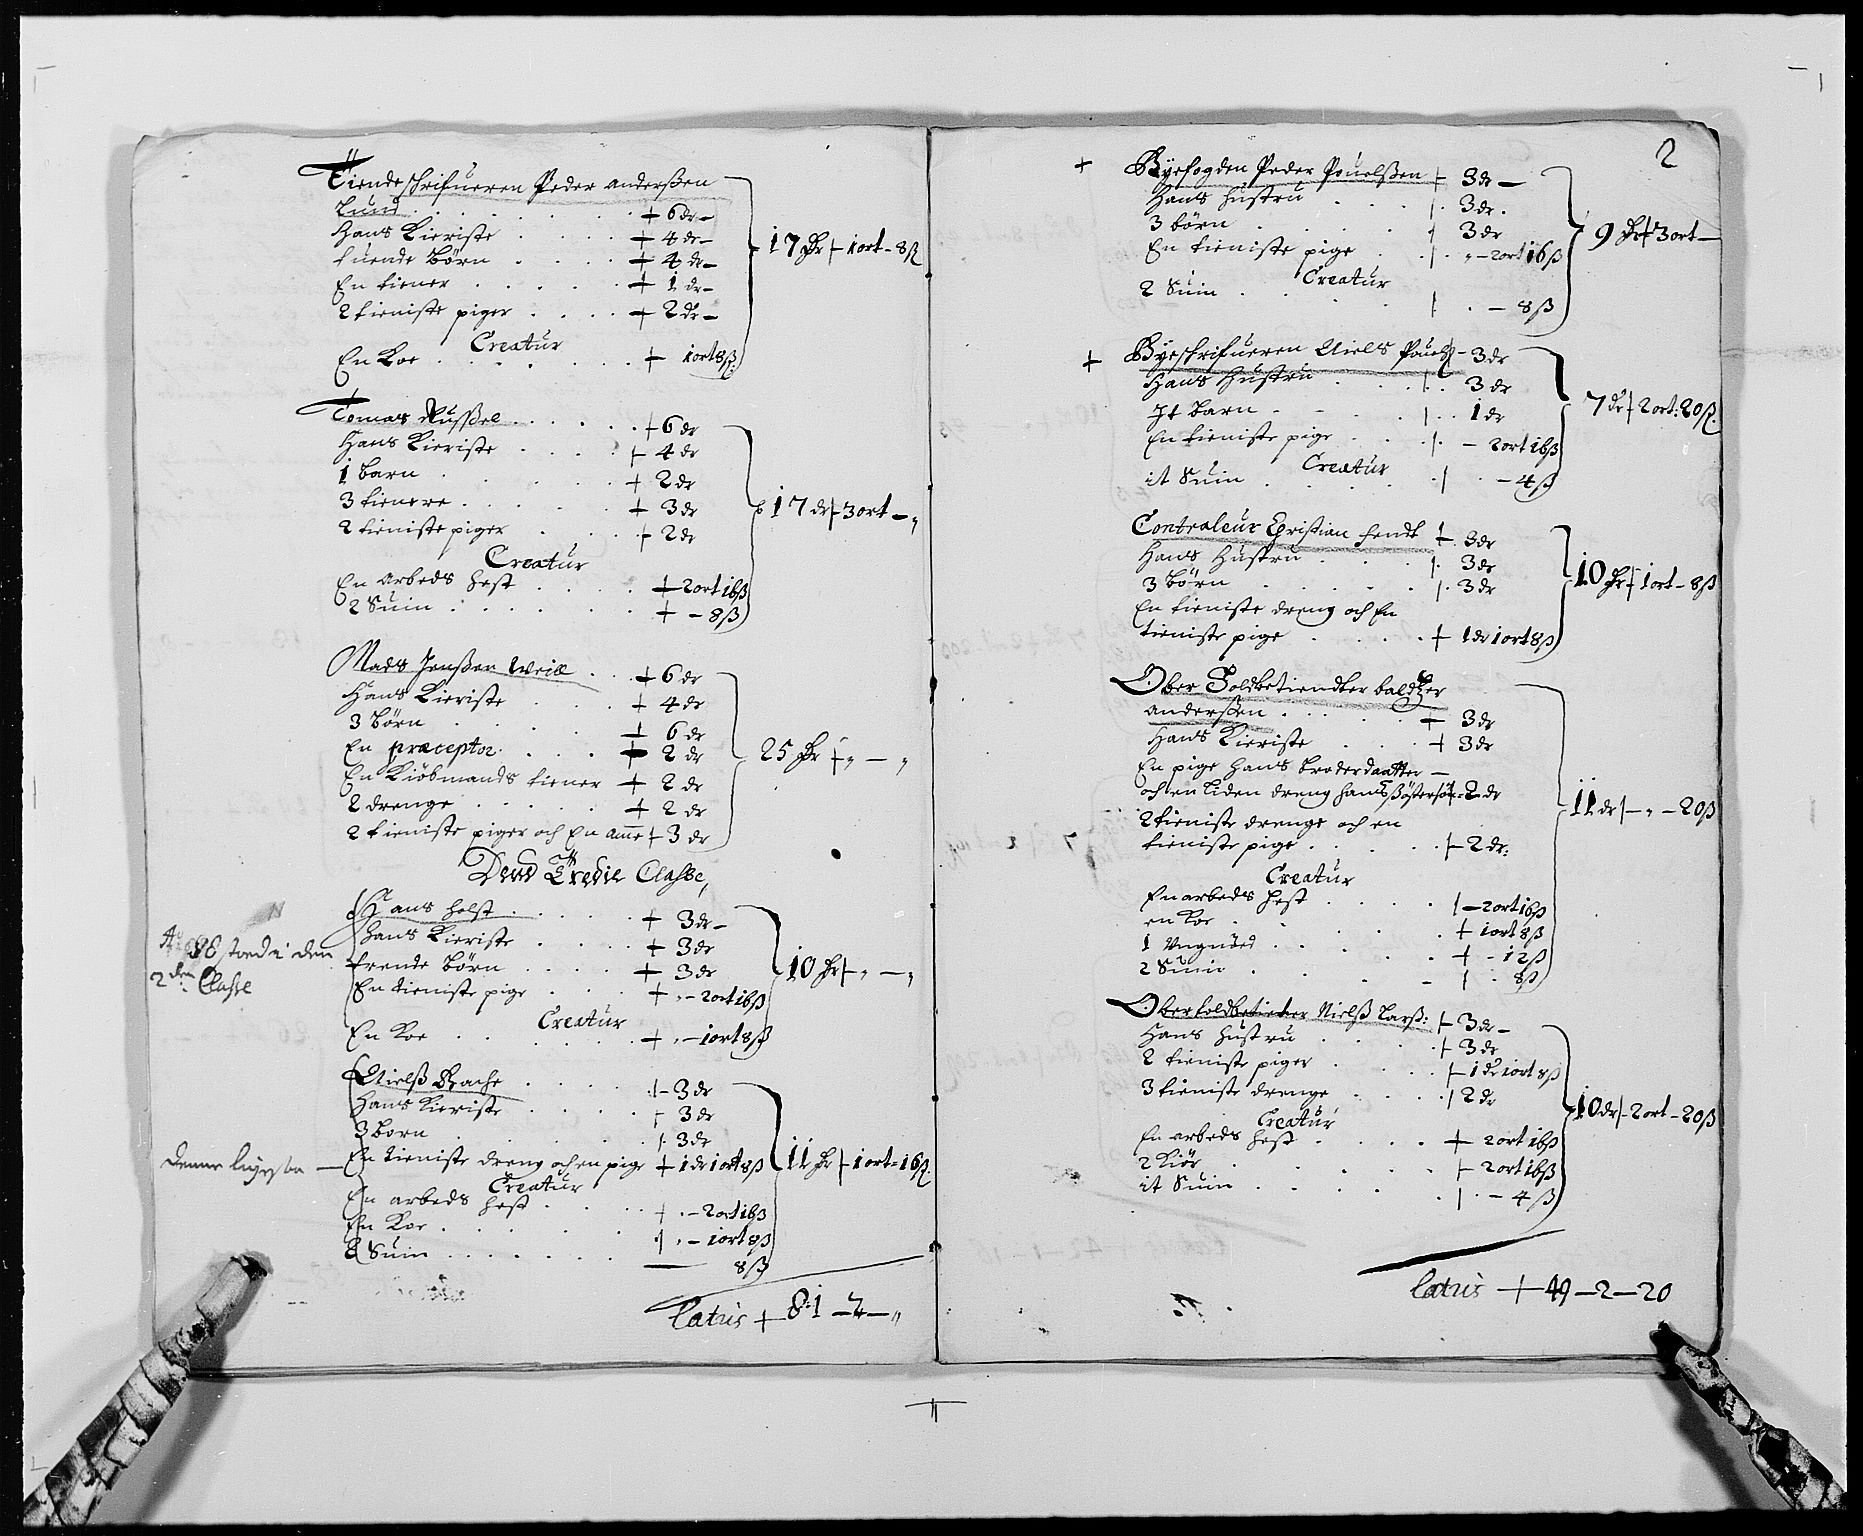 Tiendeschrifueren Peder anderßen
Lund . . . . . . + 6 dr –
Hans Kieriste . . . . + 4 dr –
tuende Börn . . . . + 4 dr –
En tiener . . . . . + 1 dr –
2 tieniste piger . . . . + 2 dr –
17 dr + 1 ort – 8 ß
Creatur
En Koe . . . . . . + 1 ort 8 ß
Tomas Russel . . . . . + 6 dr
Hans Kieriste . . . . + 4 dr
1 barn . . . . . + 2 dr
3 tienere . . . . . + 3 dr
2 tieniste piger . . . + 2 dr
17 dr + 3 ort – „
Creatur
En arbeds hest . . . . + 2 ort 16 ß
2 Suin . . . . . . + – 8 ß
Mads Jenßen Weile . . + 6 dr
Hans Kieriste . . . . + 4 dr
3 börn . . . . . + 6 dr
En præceptor . . . . + 2 dr
En Kiöbmands tiener + 2 dr
2 drenge . . . . . + 2 dr
2 tieniste piger och En ame + 3 dr
25 dr + „ – „
Dend Tredie Classe,
Hans holst . . . . . + 3 dr –
Hans Kieriste . . . . + 3 dr
trende börn . . . . + 3 dr
En tieniste pige . . . + „ – 2 ort 16 ß
10 dr + „ – „
stoed i den
2den Classe
Creatur
En Koe . . . . . + „ – 1 ort 8 ß
Nielß Bache . . . . + 3 dr
Hans Kieriste . . . . + 3 dr
3 born . . . . . + 3 dr
En tieniste dreng och en pige + 1 dr 1 ort 8 ß
11 dr + 1 ort – 16 ß
denne ligesaa —
Creatur
En arbeds hest . . . . + „ – 2 ort 16 ß
En Koe . . . . . + „ – 1 ort 8 ß
2 Suin . . . . . . — 8 ß
Latus + 81 – 2 – „
2
+ Byefogden Peder Pouelßen + 3 dr –
Hans hustru . . . + 3 dr.
3 börn . . . . . + 3 dr
En tieniste pige . . + „ – 2 ort 16 ß
9 dr + 3 ort –
Creatur
2 Suin . . . . + . – 8 ß
+ Byeschrifueren Niels Pouelß – 3 dr
Hans Hustru . . . + 3 dr
It barn . . . . + 1 dr
En tieniste pige . . . + – 2 ort 16 ß
7 dr + 2 ort : 20 ß.
Creatur
it Suin . . . . . + – 4 ß
Contraleur Christian fendt + 3 dr
Hans Hustru . . . . + 3 dr
3 börn . . . . . + 3 dr
En tieniste dreng och En
tieniste pige . . . . + 1 dr 1 ort 8 ß
10 dr + 1 ort – 8 ß
Ober Toldbetiendter baldtzer
anderßen . . . . . + 3 dr
Hans Kieriste . . . + 3 dr
En pige hans broderdaatter —
och en liden dreng hans ßösterßön + 2 dr
2 tieniste drenge och en
tieniste pige . . . . + 2 dr:
11 dr + „ – 20 ß
Creatur
En arbeds hest . . . . + – 2 ort 16 ß
en Koe . . . . . + 1 ort 8 ß
1 Ungnöed . . . . + – 12 ß
2 Suin . . . . . + . 8 ß
Ober toldbetienter Nielß Larß: + 3 dr –
Hans hustru . . . . + 3 dr
2 tieniste piger . . . + 1 dr 1 ort 8 ß
3 tieniste drenge . . . + 2 dr
10 dr + 2 ort – 20 ß
Creatur
En arbeds hest . . . . + 2 ort 16 ß
2 Kiör . . . . . + 2 ort 16 ß
it Suin . . . . . + . – 4 ß
Latus + 49 – 2 – 20